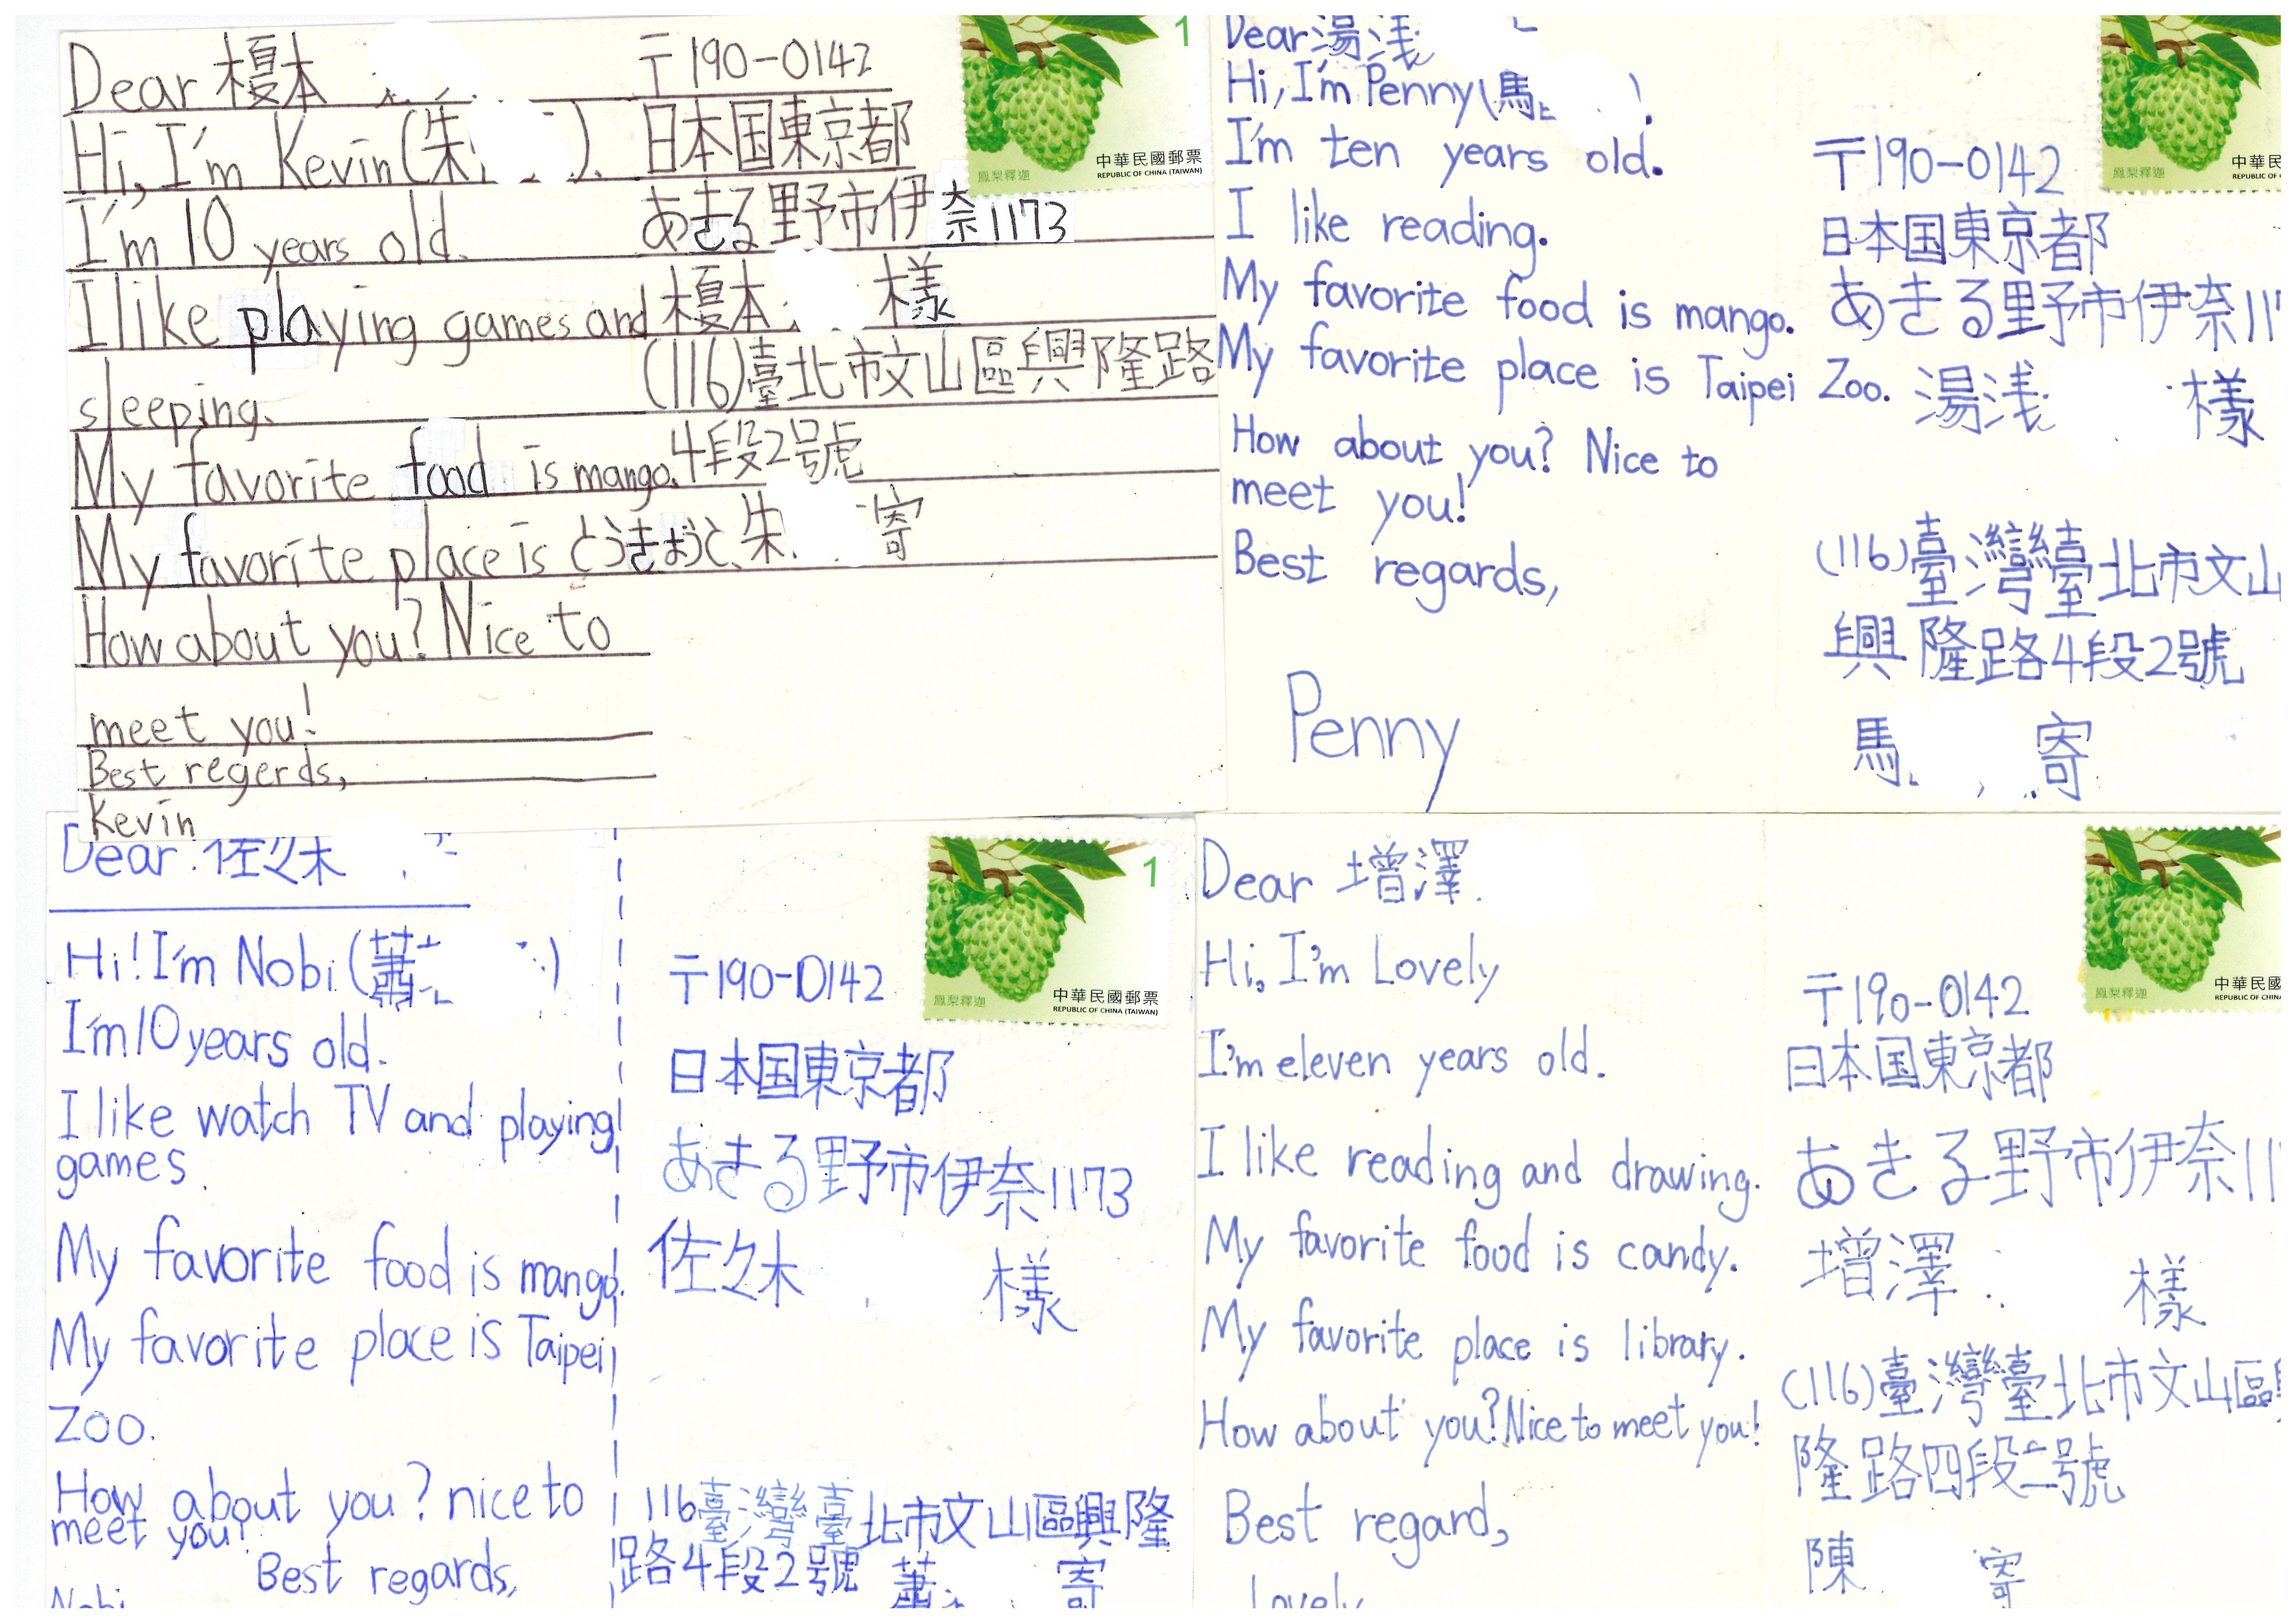 Dear 榎本
Hi, I'm Kevin (朱
I'm 10 years old.
I like playing games and
sleeping.
My favorite food is mango.
My favorite place is とうきおうと.
How about you? Nice to
meet you!
Best regerds,
Kevin
〒190-0142
日本国東京都
あきる野市伊奈1173
榎本 様
(116)臺北市文山區興隆路
4段2號
朱 寄
1
鳳梨釋迦
中華民國郵票
REPUBLIC OF CHINA (TAIWAN)
Dear 湯浅
Hi, I'm Penny (馬 ).
I'm ten years old.
I like reading.
My favorite food is mango.
My favorite place is Taipei Zoo.
How about you? Nice to
meet you!
Best regards,
Penny
〒190-0142
日本国東京都
あきる野市伊奈11
湯浅 様
(116)臺灣臺北市文山
興隆路4段2號
馬 寄
鳳梨釋迦
中華民
REPUBLIC OF CHINA
Dear 佐々木
Hi! I'm Nobi (蕭 )
I'm 10 years old.
I like watch TV and playing
games.
My favorite food is mango.
My favorite place is Taipei
Zoo.
How about you? nice to
meet you!
Best regards,
Nobi
〒190-0142
日本国東京都
あきる野市伊奈1173
佐々木 様
116臺灣臺北市文山區興隆
路4段2號 蕭 寄
1
鳳梨釋迦
中華民國郵票
REPUBLIC OF CHINA (TAIWAN)
Dear 增澤
Hi, I'm Lovely
I'm eleven years old.
I like reading and drawing.
My favorite food is candy.
My favorite place is library.
How about you? Nice to meet you!
Best regard,
Lovely
〒190-0142
日本国東京都
あきる野市伊奈11
增澤 様
(116)臺灣臺北市文山區
隆路四段二號
陳 寄
鳳梨釋迦
中華民國
REPUBLIC OF CHINA